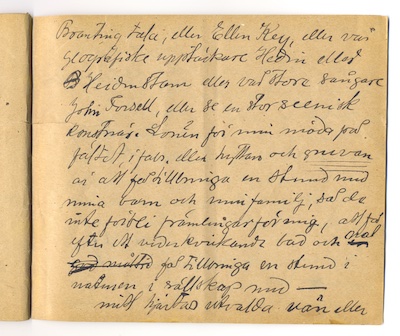 Branting tala, eller Ellen Key, eller vår
geografiske upptäckare Hedin eller
Heidenstam eller vår store sångare
John Forsell, eller se en stor scenisk
konstnär. Lönen för min möda på
fältet, i fabr. eller hyttan och gruvan
är att få tillbringa en stund med
mina barn och min familj, så de
inte förbli främlingar för mig, att få
efter ett vederkvickande bad och
god måltid få tillbringa en stund i
naturen, i sällskap med —
mitt hjärtas utvalda vän eller